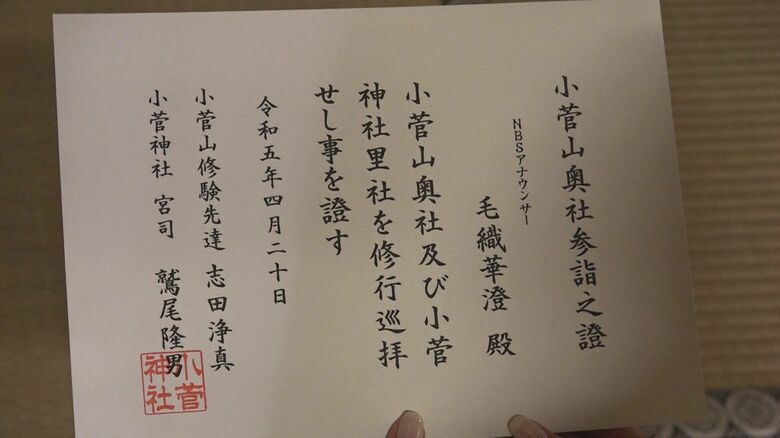 小菅山奥社参詣之證
NBSアナウンサー
毛織華澄 殿
小菅山奥社及び小菅
神社里社を修行巡拝
せし事を證す
令和五年四月二十日
小菅山修験先達 志田浄真
小菅神社 宮司 鷲尾隆男
小菅
神社